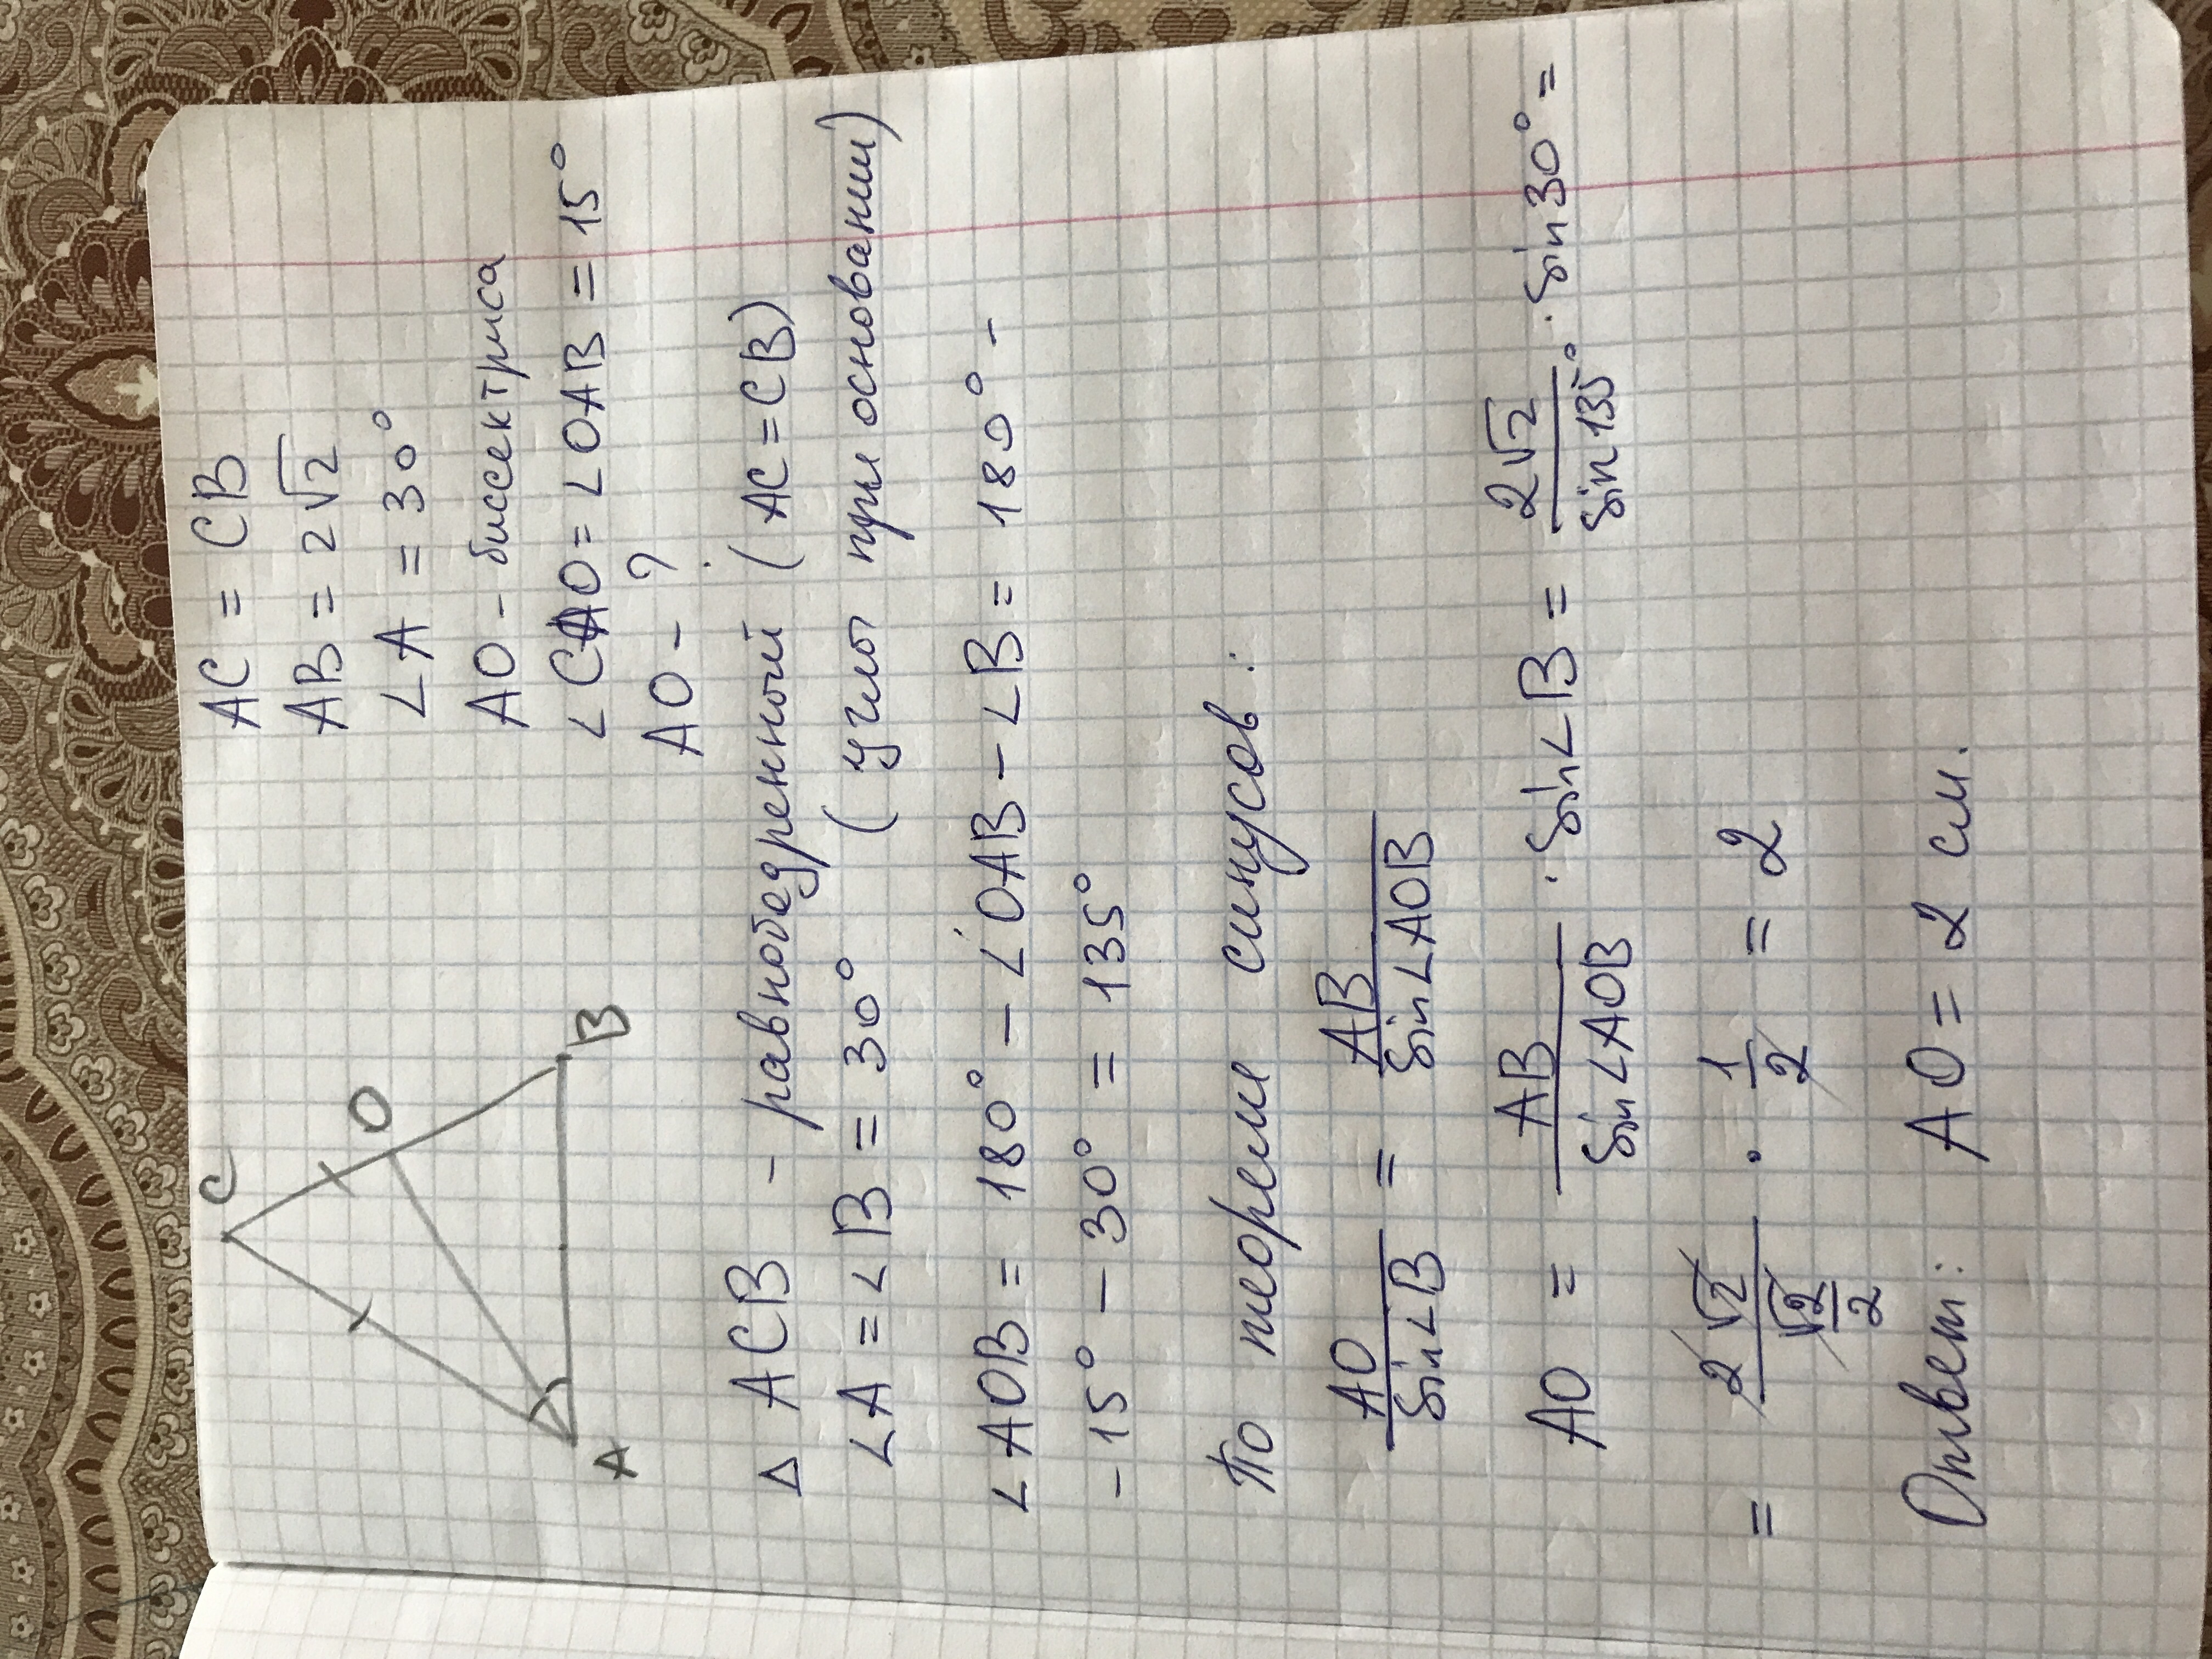 C
O
A
B
AC = CB
AB = 2√2
∠A = 30°
AO - биссектриса
∠CAO = ∠OAB = 15°
AO - ?
Δ ACB - равнобедренный (AC = CB)
∠A = ∠B = 30° (углы при основании)
∠AOB = 180° - ∠OAB - ∠B = 180° -
- 15° - 30° = 135°
По теореме синусов:
AO/sin∠B = AB/sin∠AOB
AO = AB/sin∠AOB · sin∠B = 2√2/sin135° · sin30° =
= 2√2/(√2/2) · 1/2 = 2
Ответ: AO = 2 см.